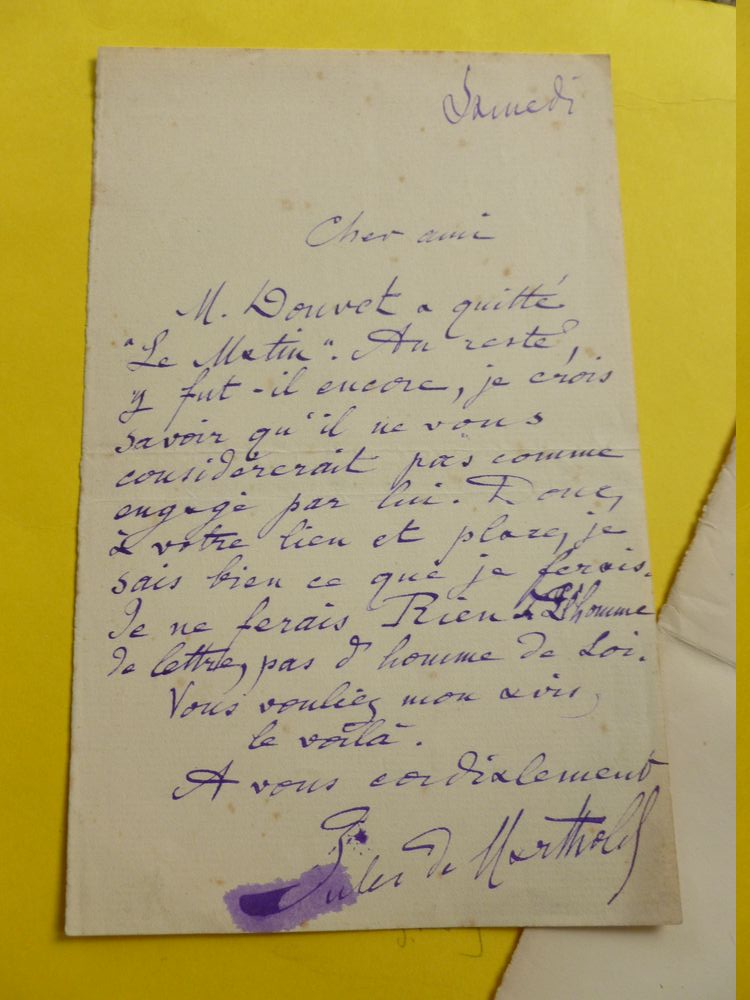 Samedi
Cher ami
M. Douvet a quitté
"Le Matin". Au reste,
y fut-il encore, je crois
savoir qu'il ne vous
considèrerait pas comme
engagé par lui. Donc,
à votre lieu et place, je
sais bien ce que je ferais.
Je ne ferais Rien L'homme
de lettre, pas d'homme de Loi.
Vous vouliez mon avis,
le voilà.
A vous cordialement
Jules de Marthold